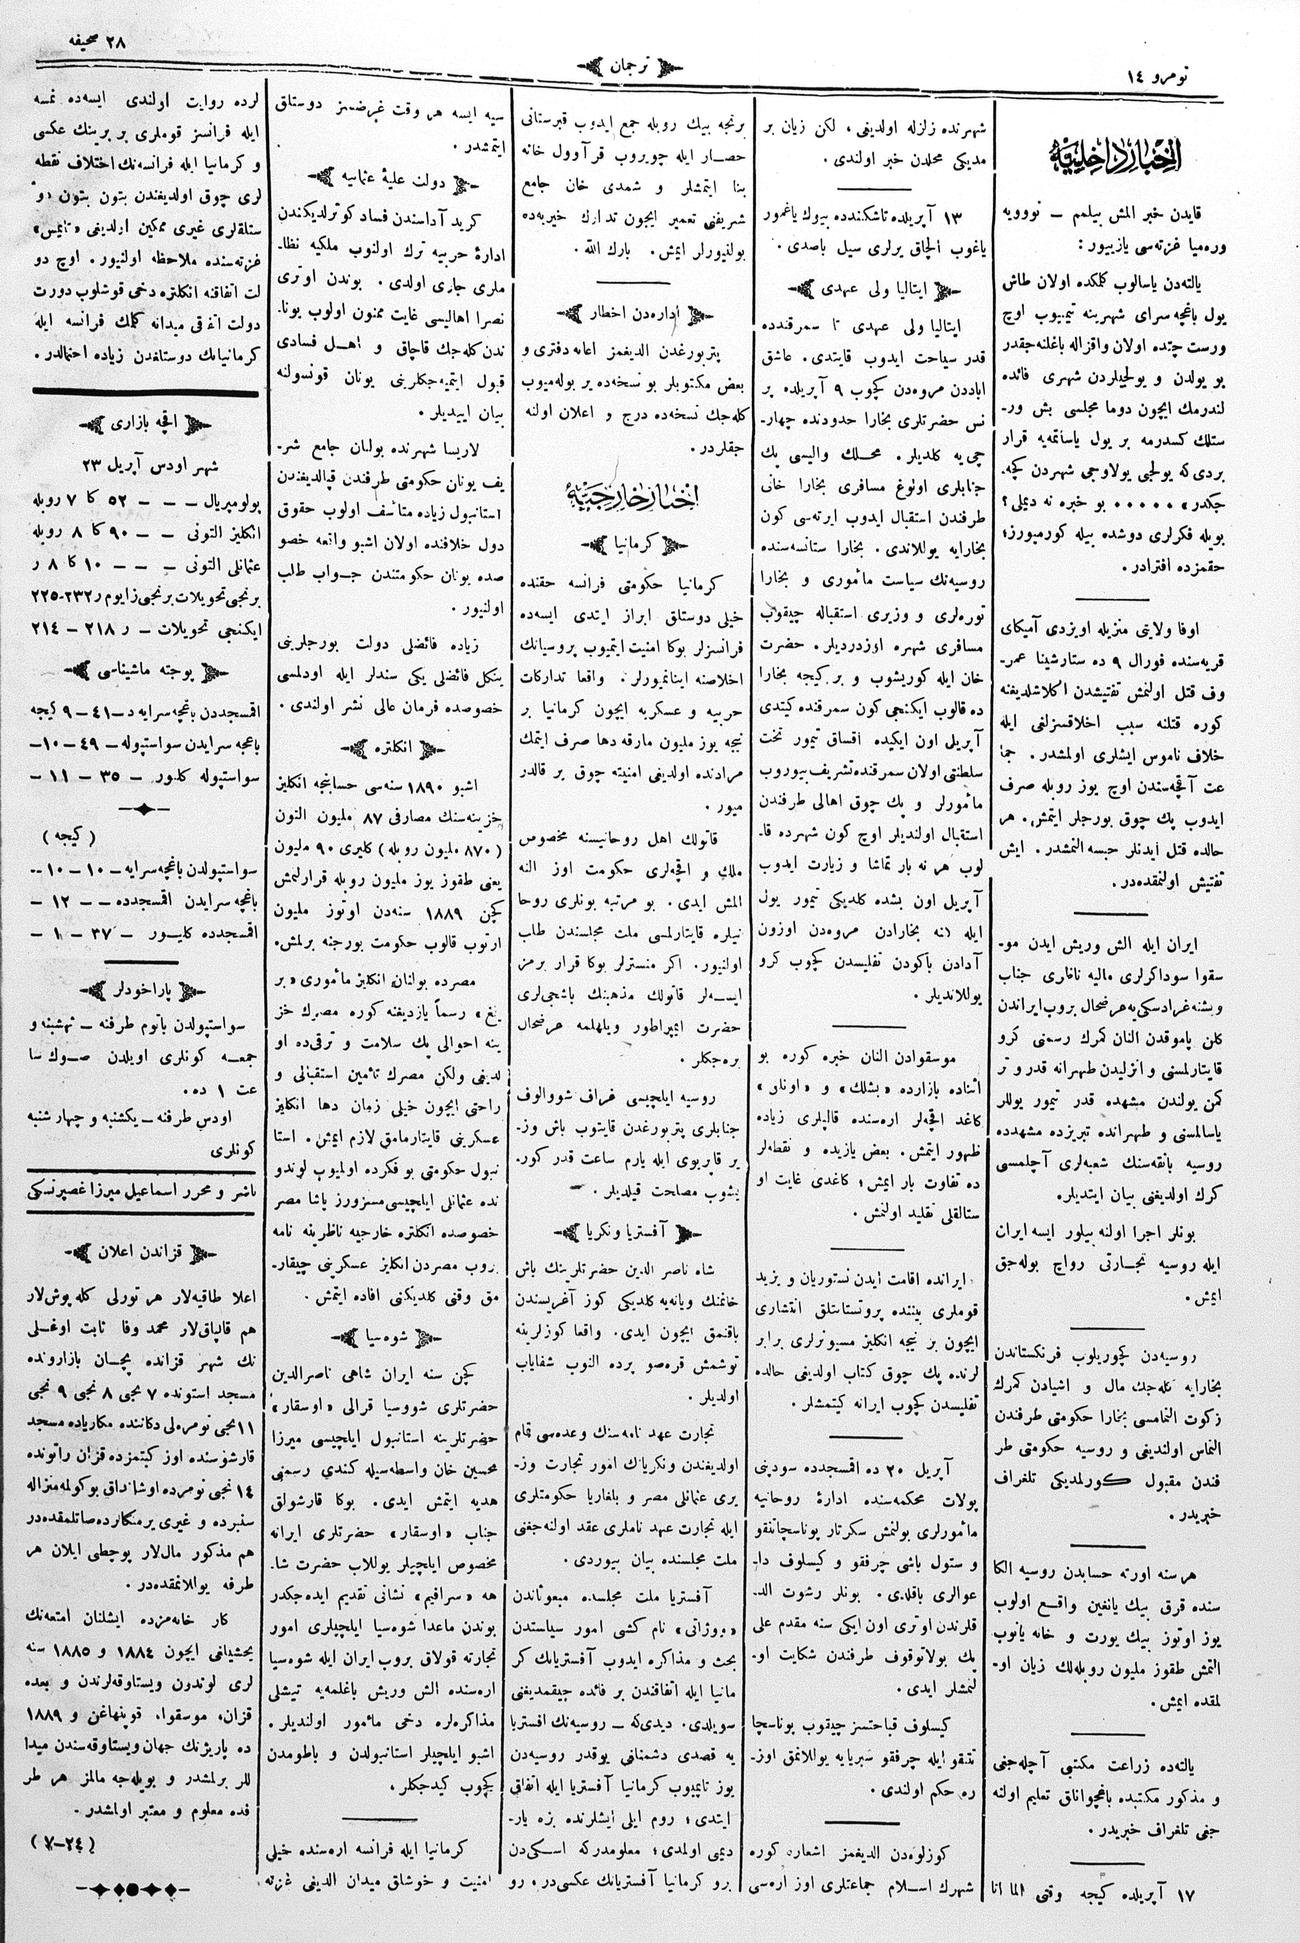 نومرو ١٤
ترجمان
٢٨ صحیفه
اخبار داخلیه
قایدن خبر المش بیلمم – نووویه
ورەمیا غزتەسی یازییور:
یالتەدن یاسالوب کلمکده اولان طاش
یول باغچه سرای شهرینه تیمیوب اوچ
ورست چتده اولان واقزاله باغلنەجقدر
بو یولدن و یولجیلردن شهری فائده
لندرمك ایچون دوما مجلسی بش ور-
ستلك کسدرمه بر یول یاساتمەیه قرار
بردی که یولجی یولاوجی شهردن کچه-
جکدر، ..... بو خبره نه دیملی؟
بویله فکرلری دوشده بیله کورمیورز؛
حقمزده افترادر.
اوفا ولایتی منزیله اویزدی آمیکای
قریەسنده فورال ٩ ده ستارشینا عمر-
وف قتل اولنمش تفتیشدن اکلاشلدیغنه
کوره قتلنه سبب اخلاقسزلغی ایله
خلاف ناموس ایشلری اولمشدر. جما
عت آقچەسندن اوچ یوز روبله صرف
ایدوب پك چوق بورجلر ایتمش. هر
حالده قتل ایدنلر حبسه النمشدر. ایش
تفتیش اولنمقدەدر.
ایران ایله الش وریش ایدن مو-
سقوا سوداکرلری مالیه ناظری جناب
ویشنەغرادسکی یه عرضحال بروب ایراندن
کلن پاموقدن النان کمرك رسمنی کرو
قایتارلمسنی و انزلیدن طهرانه قدر و تر
کمن یولندن مشهده قدر تیمور یوللر
یاسالمسنی و طهرانده تبریزده مشهدده
روسیه بانقەسنك شعبەلری آچلمسی
کرك اولدیغنی بیان ایتدیلر.
بونلر اجرا اولنه بیلور ایسه ایران
ایله روسیه تجارتی رواج بولەجق
ایمش.
روسیەدن کچوریلوب فرنکستاندن
بخارایه کلەجك مال و اشیادن کمرك
زکوت النمامسی بخارا حکومتی طرفندن
التماس اولندیغنی و روسیه حکومتی طر
فندن مقبول کورلمدیکی تلغراف
خبریدر.
هر سنه اورته حسابدن روسیه الکا
سنده قرق بیك یانغین واقع اولوب
یوز اوتوز بیك یورت و خانه یانوب
التمش طقوز ملیون روبلەلك زیان او-
لمقده ایمش.
یالتەده زراعت مکتبی آچلەجغی
و مذکور مکتبده باغچواناق تعلیم اولنه
جغی تلغراف خبریدر.
١٧ آپریلده کیجه وقتی الما اتا
شهرنده زلزله اولدیغی، لکن زیان بر
مدیکی محلدن خبر اولندی.
١٣ آپریلده تاشکندده بیوك یاغمور
یاغوب الچاق یرلری سیل باصدی.
ایتالیا ولی عهدی
ایتالیا ولی عهدی تا سمرقنده
قدر سیاحت ایدوب قایتدی. عاشق
اباددن مروەدن کچوب ٩ آپریلده پر
نس حضرتلری بخارا حدودنده چهار-
جی یه کلدیلر. محلك والیسی پك
جنابلری اولوغ مسافری بخارا خانی
طرفندن استقبال ایدوب ایرتەسی کون
بخارایه یوللاندی. بخارا ستانسەسنده
روسیەنك سیاست مأموری و بخارا
تورەلری و وزیری استقباله چیقوب
مسافری شهره اوزدردیلر. حضرت
خان ایله کوریشوب و بر کیجه بخارا
ده قالوب ایکنجی کون سمرقنده کیتدی
آپریلی اون ایکیده اقساق تیمور تخت
سلطنتی اولان سمرقنده تشریف بیوروب
مأمورلر و پك چوق اهالی طرفندن
استقبال اولندیلر اوچ کون شهرده قا-
لوب هر نه بار تماشا و زیارت ایدوب
آپریل اون بشده کلدیکی تیمور یول
ایله ینه بخارادن مروەدن اوزون
آدادن باکودن تفلیسدن کچوب کرو
یوللاندیلر.
موسقوادن النان خبره کوره بو
اثناده بازارده «بشلك» و «اونلی»
کاغد اقچەلر ارەسنده قالپلری زیاده
ظهور ایتمش. بعض یازیده و نقطەلر
ده تفاوت بار ایمش؛ کاغدی غایت او
ستالقلی تقلید اولنمش.
ایرانده اقامت ایدن نستوریان و یزید
قوملری بیننده پروتستانتلق انتشاری
ایچون بر نیچه انکلیز مسیونرلری برابر
لرنده پك چوق کتاب اولدیغی حالده
تفلیسدن کچوب ایرانه کیتمشلر.
آپریل ٢٠ ده اقمسجدده سودبنی
پولات محکمەسنده ادارۀ روحانیه
مأمورلری بولنمش سکرتار پوناسچاتنقو
و ستول باشی چرفقو و کیسلوف دا-
عوالری باقلدی. بونلر رشوت الد-
قلرندن اوتری اون ایکی سنه مقدم علی
بك بولاتوقوف طرفندن شکایت او-
لنمشلر ایدی.
کیسلوف قباحتسز چیقوب پوناسچا
تنقو ایله چرفقو سبریایه یوللانمق اوز-
ره حکم اولندی.
کوزلوەدن الدیغمز اشعاره کوره
شهرك اسلام جماعتلری اوز ارەسی
برنجه بیك روبله جمع ایدوب قبرستانی
حصار ایله چویروب قرآوول خانه
بنا ایتمشلر و شمدی خان جامع
شریفنی تعمیر ایچون تدارك خیریەده
بولنیورلر ایمش. بارك الله.
ادارەدن اخطار
پتربورغدن الدیغمز اعانه دفتری و
بعض مکتوبلر بو نسخەده یر بولەمیوب
کلەجك نسخەده درج و اعلان اولنه
جقلردر.
اخبار خارجیه
کرمانیا
کرمانیا حکومتی فرانسه حقنده
خیلی دوستلق ابراز ایتدی ایسەده
فرانسزلر بوکا امنیت ایتمیوب پروسیانك
اخلاصنه اینانمیورلر. واقعا تدارکات
حربیه و عسکریه ایچون کرمانیا بر
نیجه یوز ملیون مارقه دها صرف ایتمك
مرادنده اولدیغی امنیته چوق یر قالدر
میور.
قاتولك اهل روحانیسنه مخصوص
ملك و اقچەلری حکومت اوز النه
المش ایدی. بو مرتبه بونلری روحا
نیلره قایتارلمسی ملت مجلسندن طلب
اولنیور. اکر منسترلر بوکا قرار برمز
ایسەلر قاتولك مذهبنك باشجی لری
حضرت ایمپراطور ویلهلمه عرضحال
برەجکلر.
روسیه ایلچیسی غراف شووالوف
جنابلری پتربورغدن قایتوب باش وز-
یر قاپریوی ایله یارم ساعت قدر کور-
یشوب مصلحت قیلدیلر.
آفستریا ونکریا
شاه ناصر الدین حضرتلرینك باش
خاتمنك ویانەیه کلدیکی کوز آغریسندن
باقنمق ایچون ایدی. واقعا کوزلرینه
توشمش قرەصو پرده النوب شفایاب
اولدیلر.
تجارت عهد نامەسنك وعدەسی تمام
اولدیغندن ونکریانك امور تجارت وز-
یری عثمانلی مصر و بلغاریا حکومتلری
ایله تجارت عهد ناملری عقد اولنەجغنی
ملت مجلسنده بیان بیوردی.
آفستریا ملت مجلسده مبعوثاندن
نام کشی امور سیاستدن
بحث و مذاکره ایدوب آفستریانك کر
مانیا ایله اتفاقندن بر فائده چیقمدیغنی
سویلدی. دیدی که – روسیەنك افستریا
یه قصدی دشمنلغی یوقدر روسیەدن
یوز تایمیوب کرمانیا آفستریا ایله اتفاق
ایتدی؛ روم ایلی ایشلرنده بزه یار-
دیمی اولمدی؛ معلومدرکه اسکیدن
برو کرمانیا آفستریانك عکسی در. رو
سیه ایسه هر وقت غرضمز دوستلق
ایتمشدر.
دولت علیۀ عثمانیه
کرید آداسندن فساد کوترلدیکندن
ادارۀ حربیه ترك اولنوب ملکیه نظا-
ملری جاری اولدی. بوندن اوتری
نصرا اهالیسی غایت ممنون اولوب یونا-
ندن کلەجك قاچاق و اهل فسادی
قبول ایتمیەجکلرینی یونان قونسولنه
بیان اییدیلر.
لاریسا شهرنده بولنان جامع شر-
یف یونان حکومتی طرفندن قپالدیغندن
استانبول زیاده متأسف اولوب حقوق
دول خلافنده اولان اشبو واقعه خصو
صده یونان حکومتندن جواب طلب
اولنیور.
زیاده فائضلی دولت بورجلرینی
ینکل فائضلی یکی سندلر ایله اودلمسی
خصوصده فرمان عالی نشر اولندی.
انکلتره
اشبو ١٨٩٠ سنەسی حسابنجه انکلیز
خزینەسنك مصارفی ٨٧ ملیون التون
(٨٧٠ ملیون روبله) کلیری ٩٠ ملیون
یعنی طقوز یوز ملیون روبله قرارلنمش
کچن ١٨٨٩ سنەدن اوتوز ملیون
ارتوب قالوب حکومت بورجنه برلمش.
مصرده بولنان انکلیز مأموری «بر
ینغ» رسماً یازدیغنه کوره مصرك خز
ینه احوالی پك سلامت و ترقی ده او
لدیغی ولکن مصرك تأمین استقبالی و
راحتی ایچون خیلی زمان دها انکلیز
عسکرینی قایتارمامق لازم ایمش. استا
نبول حکومتی بو فکرده اولمیوب لوندو
نده عثمانلی ایلچیسی مسزورز پاشا مصر
خصوصده انکلتره خارجیه ناظرینه نامه
بروب مصردن انکلیز عسکرینی چیقار-
مق وقتی کلدیکنی افاده ایتمش.
شوەسیا
کچن سنه ایران شاهی ناصرالدین
حضرتلری شووسیا قرالی «اوسقار»
حضرتلرینه استانبول ایلچیسی میرزا
محسین خان واسطەسیله کندی رسمنی
هدیه ایتمش ایدی. بوکا قارشولق
جناب «اوسقار» حضرتلری ایرانه
مخصوص ایلچیلر یوللاب حضرت شا-
هه «سرافیم» نشانی تقدیم ایدەجکدر
بوندن ماعدا شوەسیا ایلچیلری امور
تجارته قولاق بروب ایران ایله شوەسیا
ارەسنده الش وریش باغلمەیه تیشلی
مذاکرەلره دخی مأمور اولندیلر.
اشبو ایلچیلر استانبولدن و باطومدن
کچوب کیدجکلر.
کرمانیا ایله فرانسه ارەسنده خیلی
امنیت و خوشلق میدان الدیغی غزته
لرده روایت اولندی ایسەده نمسه
ایله فرانسز قوملری بر برینك عکسی
و کرمانیا ایله فرانسەنك اختلاف نقطه
لری چوق اولدیغندن بتون بتون دو
ستلقلری غیری ممکن اولدیغی «تایمس»
غزتەسنده ملاحظه اولنیور. اوچ دو
لت اتفاقنه انکلتره دخی قوشلوب دورت
دولت اتفاقی میدانه کلمك فرانسه ایله
کرمانیانك دوستلغدن زیاده احتمالدر.
اقچه بازاری
شهر اودس آپریل ٢٣
پولومپریال – – – ٥٢ کا ٧ روبله
انکلیز التونی – – ٩٠ کا ٨ روبله
عثمانلی التونی – – – ١٠ کا ٨ ر
برنجی تحویلات برنجی زایوم ر٢٣٢–٢٢٥
ایکنجی تحویلات – ر ٢١٨ – ٢١٤
پوچته ماشیناسی
اقمسجددن باغچه سرایه د–٤١–٩ کیجه
باغچه سرایدن سواستپوله–٤٩–١٠–
سواستپوله کلور – ٣٥ – ١١ –
(کیجه)
سواستپولدن باغچه سرایه – ١٠ – ١٠ –
باغچه سرایدن اقمسجدده – – ١٢ –
اقمسجدده کلیور – ٣٧ – ١ –
پاراخودلر
سواستپولدن باتوم طرفنه – پنجشنبه و
جمعه کونلری اویلدن صوك سا
عت ١ ده.
اودس طرفنه – یکشنبه و چهارشنبه
کونلری
ناشر و محرر اسماعیل میرزا غصپرنسکی
قزاندن اعلان
اعلا طاقیەلار هر تورلی کله پوش لار
هم قالپاق لار محمد وفا ثابت اوغلی
نك شهر قزانده پچان بازارونده
مسجد استونده ٧ نجی ٨ نجی ٩ نجی
١١ نجی نومرەلی دکاننده مکاریاده مسجد
قارشوسنده اوز کبتمزده قزان راتونده
١٤ نجی نومرده اوشانداق بوکولمه منزاله
سنبرده و غیری یرمنکارده صاتلمقدەدر
هم مذکور مال لار پوچطی ایلان هر
طرفه یوللانمقدەدر.
کار خانەمزده ایشلنان امتعەنك
یخشیلغی ایچون ١٨٨٤ و ١٨٨٥ سنه
لری لوندون ویستاوقەلرندن و بعده
قزان، موسقوا، قوپنهاغن و ١٨٨٩
ده پاریژنك جهان ویستاوقەسندن میدا
للر برلمشدر و بویلەجه مالمز هر طر
فده معلوم و معتبر اولمشدر.
(٢٤–٧)